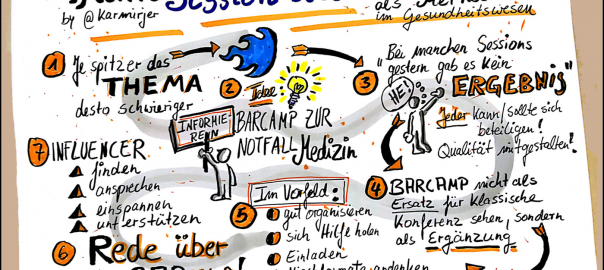 by @Karmirjer
im Gesundheitswesen
1 Je spitzer das
THEMA
desto schwieriger
2 Idee:
INFORMIE-
RENN
BARCAMP ZUR
NOTFALL Medizin
3 "Bei manchen Sessions
gestern gab es kein
ERGEBNIS"
HEY!
Jeder kann/sollte sich
beteiligen!
Qualität mitgestalten!
4 BARCAMP nicht als
Ersatz für klassische
Konferenz sehen, sondern
als Ergänzung
5 Im Vorfeld:
gut organisieren
sich Hilfe holen
Einladen
6 Rede über
7 INFLUENCER
finden
ansprechen
einspannen
unterstützen